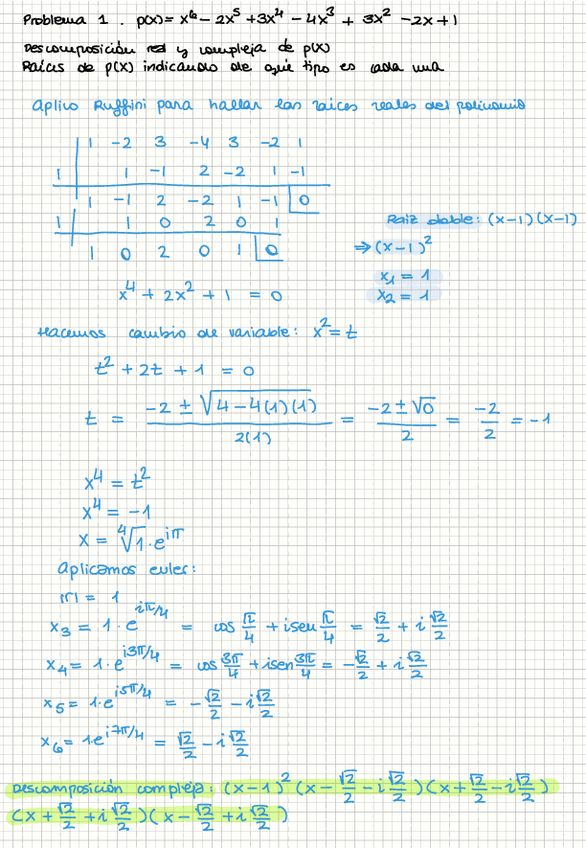 Problema 1. p(x) = x⁶ - 2x⁵ + 3x⁴ - 4x³ + 3x² - 2x + 1
Descomposición real y compleja de p(x)
Raíces de p(x) indicando de qué tipo es cada una
Aplico Ruffini para hallar las raices reales del polinomio
1 -2 3 -4 3 -2 1
1 1 -1 2 -2 1 -1
1 -1 2 -2 1 -1 0
1 1 0 2 0 1
1 0 2 0 1 0
Raiz doble: (x-1)(x-1)
⇒ (x-1)²
x₁ = 1
x₂ = 1
x⁴ + 2x² + 1 = 0
Hacemos cambio de variable: x² = t
t² + 2t + 1 = 0
t = (-2 ± √(4-4(1)(1)))/2(1) = (-2 ± √0)/2 = -2/2 = -1
x⁴ = t²
x⁴ = -1
x = ⁴√1 · e^(iπ)
Aplicamos euler:
|r| = 1
x₃ = 1 · e^(iπ/4) = cos π/4 + i sen π/4 = √2/2 + i √2/2
x₄ = 1 · e^(i3π/4) = cos 3π/4 + i sen 3π/4 = -√2/2 + i √2/2
x₅ = 1 · e^(i5π/4) = -√2/2 - i √2/2
x₆ = 1 · e^(i7π/4) = √2/2 - i √2/2
Descomposición compleja: (x-1)² (x - √2/2 - i √2/2)(x + √2/2 - i √2/2)
(x + √2/2 + i √2/2)(x - √2/2 + i √2/2)